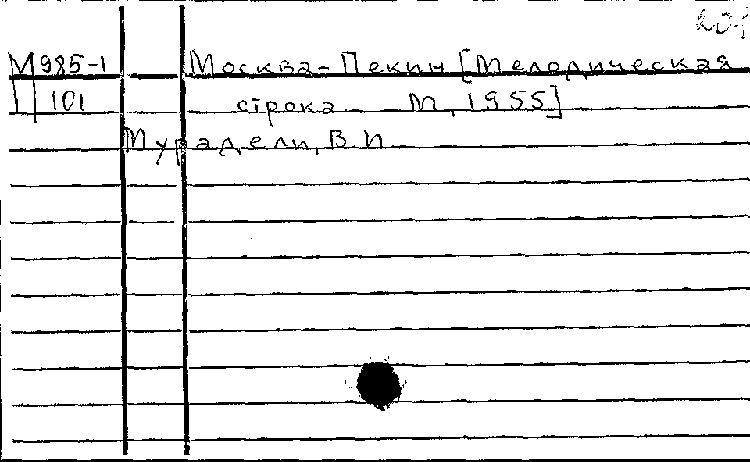 М985-1 Москва-Пекин [Мелодическая
101 строка М, 1955]
Мурадели, В И